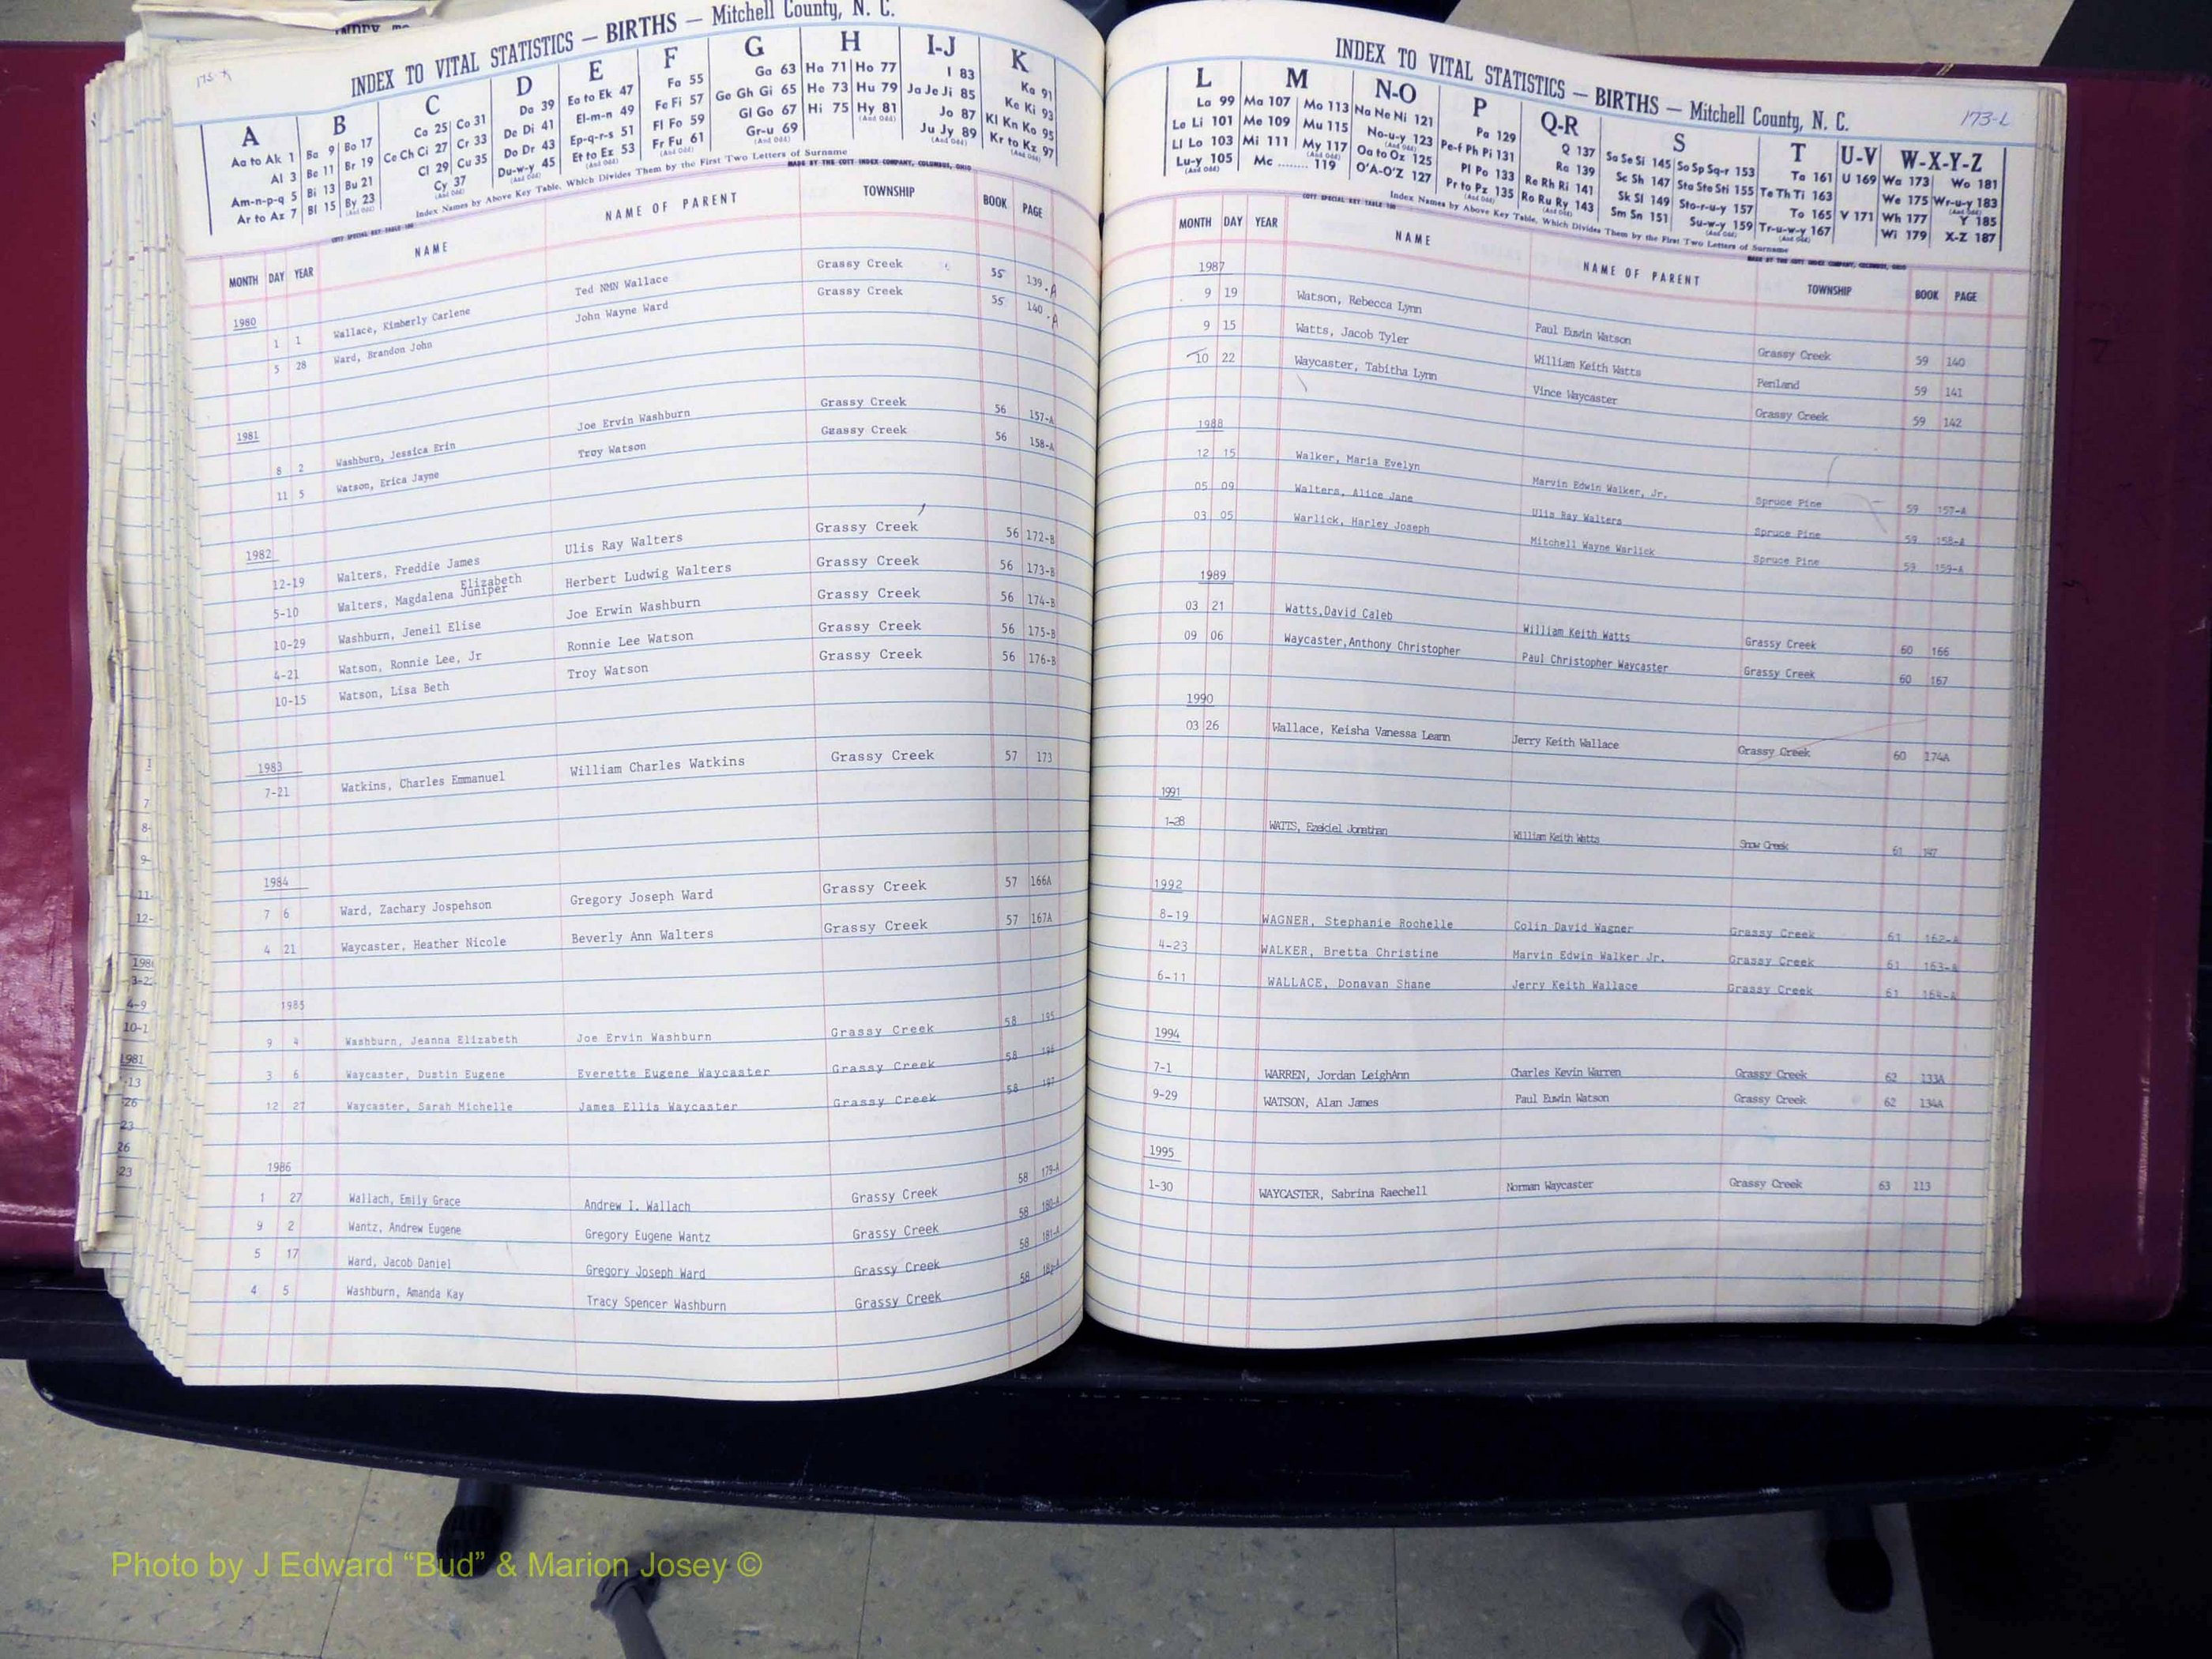 INDEX TO VITAL STATISTICS — BIRTHS — Mitchell County, N. C.
A B C D E F G H I-J K
Aa to Ak 1 Ba 9 Bo 17 Ca 25 Co 31 Da 39 Ea to Ek 47 Fa 55 Ga 63 Ha 71 Ho 77 I 83 Ka 91
Al 3 Be 11 Br 19 Ce Ch Ci 27 Cr 33 De Di 41 El-m-n 49 Fe Fi 57 Ge Gh Gi 65 He 73 Hu 79 Ja Je Ji 85 Ke Ki 93
Am-n-p-q 5 Bi 13 Bu 21 Cl 29 Cu 35 Do Dr 43 Ep-q-r-s 51 Fl Fo 59 Gl Go 67 Hi 75 Hy 81 (And Odd) Jo 87 Kl Kn Ko 95
Ar to Az 7 Bl 15 By 23 (And Odd) Cy 37 (And Odd) Du-w-y 45 (And Odd) Et to Ez 53 (And Odd) Fr Fu 61 (And Odd) Gr-u 69 (And Odd) Ju Jy 89 (And Odd) Kr to Kz 97 (And Odd)
Index Names by Above Key Table, Which Divides Them by the First Two Letters of Surname
MADE BY THE COTT INDEX COMPANY, COLUMBUS, OHIO
MONTH DAY YEAR NAME NAME OF PARENT TOWNSHIP BOOK PAGE
1980
1 1 Wallace, Kimberly Carlene Ted NMN Wallace Grassy Creek 55 139-A
5 28 Ward, Brandon John John Wayne Ward Grassy Creek 55 140-A
1981
8 2 Washburn, Jessica Erin Joe Ervin Washburn Grassy Creek 56 157-A
11 5 Watson, Erica Jayne Troy Watson Grassy Creek 56 158-A
1982
12-19 Walters, Freddie James Ulis Ray Walters Grassy Creek 56 172-B
5-10 Walters, Magdalena Elizabeth Juniper Herbert Ludwig Walters Grassy Creek 56 173-B
10-29 Washburn, Jeneil Elise Joe Erwin Washburn Grassy Creek 56 174-B
4-21 Watson, Ronnie Lee, Jr Ronnie Lee Watson Grassy Creek 56 175-B
10-15 Watson, Lisa Beth Troy Watson Grassy Creek 56 176-B
1983
7-21 Watkins, Charles Emmanuel William Charles Watkins Grassy Creek 57 173
1984
7 6 Ward, Zachary Jospehson Gregory Joseph Ward Grassy Creek 57 166A
4 21 Waycaster, Heather Nicole Beverly Ann Walters Grassy Creek 57 167A
1985
9 4 Washburn, Jeanna Elizabeth Joe Ervin Washburn Grassy Creek 58 195
3 6 Waycaster, Dustin Eugene Everette Eugene Waycaster Grassy Creek 58 196
12 27 Waycaster, Sarah Michelle James Ellis Waycaster Grassy Creek 58 197
1986
1 27 Wallach, Emily Grace Andrew I. Wallach Grassy Creek 58 179-A
9 2 Wantz, Andrew Eugene Gregory Eugene Wantz Grassy Creek 58 180-A
5 17 Ward, Jacob Daniel Gregory Joseph Ward Grassy Creek 58 181-A
4 5 Washburn, Amanda Kay Tracy Spencer Washburn Grassy Creek 58
INDEX TO VITAL STATISTICS — BIRTHS — Mitchell County, N. C.
173-L
L M N-O P Q-R S T U-V W-X-Y-Z
La 99 Ma 107 Mo 113 Na Ne Ni 121 Pa 129 Q 137 Sa Se Si 145 So Sp Sq-r 153 Ta 161 U 169 Wa 173 Wo 181
Le Li 101 Me 109 Mu 115 No-u-y 123 (And Odd) Pe-f Ph Pi 131 Ra 139 Sc Sh 147 Sta Ste Sti 155 Te Th Ti 163 We 175 Wr-u-y 183 (And Odd)
Ll Lo 103 Mi 111 My 117 (And Odd) Oa to Oz 125 Pl Po 133 Re Rh Ri 141 Sk Sl 149 Sto-r-u-y 157 To 165 V 171 Wh 177 Y 185
Lu-y 105 (And Odd) Mc ........ 119 O'A-O'Z 127 Pr to Pz 135 (And Odd) Ro Ru Ry 143 (And Odd) Sm Sn 151 Su-w-y 159 (And Odd) Tr-u-w-y 167 (And Odd) Wi 179 X-Z 187
Index Names by Above Key Table, Which Divides Them by the First Two Letters of Surname
MADE BY THE COTT INDEX COMPANY, COLUMBUS, OHIO
MONTH DAY YEAR NAME NAME OF PARENT TOWNSHIP BOOK PAGE
1987
9 19 Watson, Rebecca Lynn Paul Euwin Watson Grassy Creek 59 140
9 15 Watts, Jacob Tyler William Keith Watts Penland 59 141
10 22 Waycaster, Tabitha Lynn Vince Waycaster Grassy Creek 59 142
1988
12 15 Walker, Maria Evelyn Marvin Edwin Walker, Jr. Spruce Pine 59 157-A
05 09 Walters, Alice Jane Ulis Ray Walters Spruce Pine 59 158-A
03 05 Warlick, Harley Joseph Mitchell Wayne Warlick Spruce Pine 59 159-A
1989
03 21 Watts,David Caleb William Keith Watts Grassy Creek 60 166
09 06 Waycaster,Anthony Christopher Paul Christopher Waycaster Grassy Creek 60 167
1990
03 26 Wallace, Keisha Vanessa Leann Jerry Keith Wallace Grassy Creek 60 174A
1991
1-28 WATTS, Ezekiel Jonathan William Keith Watts Snow Creek 61 147
1992
8-19 WAGNER, Stephanie Rochelle Colin David Wagner Grassy Creek 61 162-A
4-23 WALKER, Bretta Christine Marvin Edwin Walker Jr. Grassy Creek 61 163-A
6-11 WALLACE, Donavan Shane Jerry Keith Wallace Grassy Creek 61 164-A
1994
7-1 WARREN, Jordan LeighAnn Charles Kevin Warren Grassy Creek 62 133A
9-29 WATSON, Alan James Paul Euwin Watson Grassy Creek 62 134A
1995
1-30 WAYCASTER, Sabrina Raechell Norman Waycaster Grassy Creek 63 113
Photo by J Edward “Bud” & Marion Josey ©